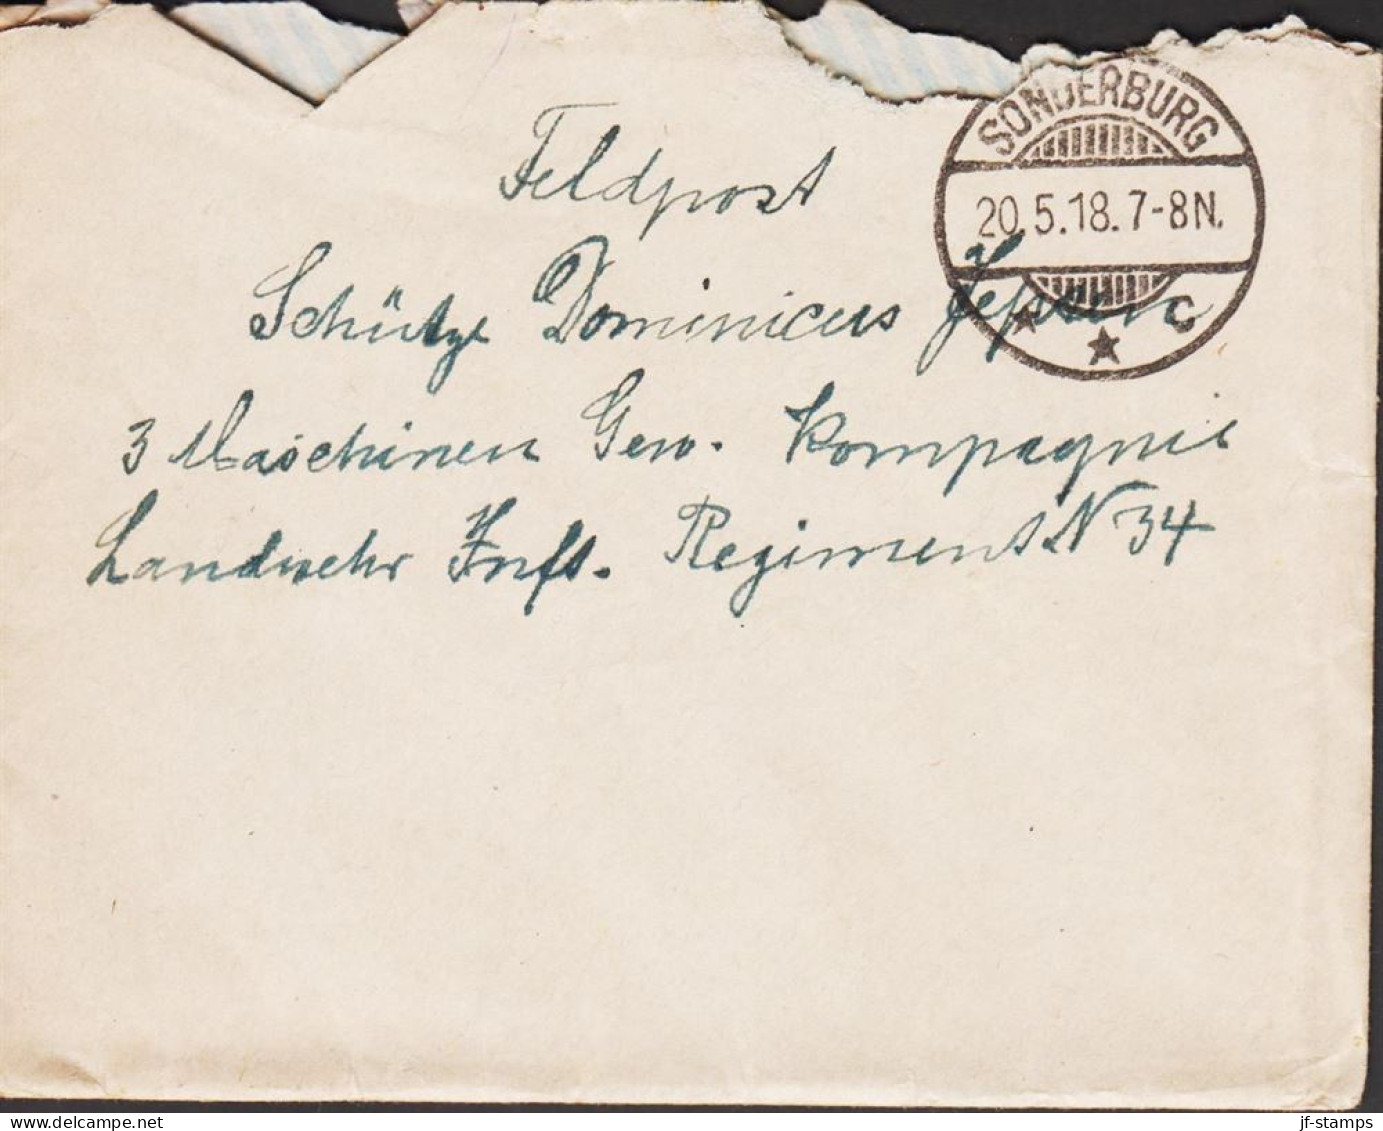 SONDERBURG
20.5.18.7-8N.
* * c
Feldpost
Schütze Dominicus Jepsen
3 Maschinen Gew. Kompagnie
Landwehr Inft. Regiment N 34
jf-stamps